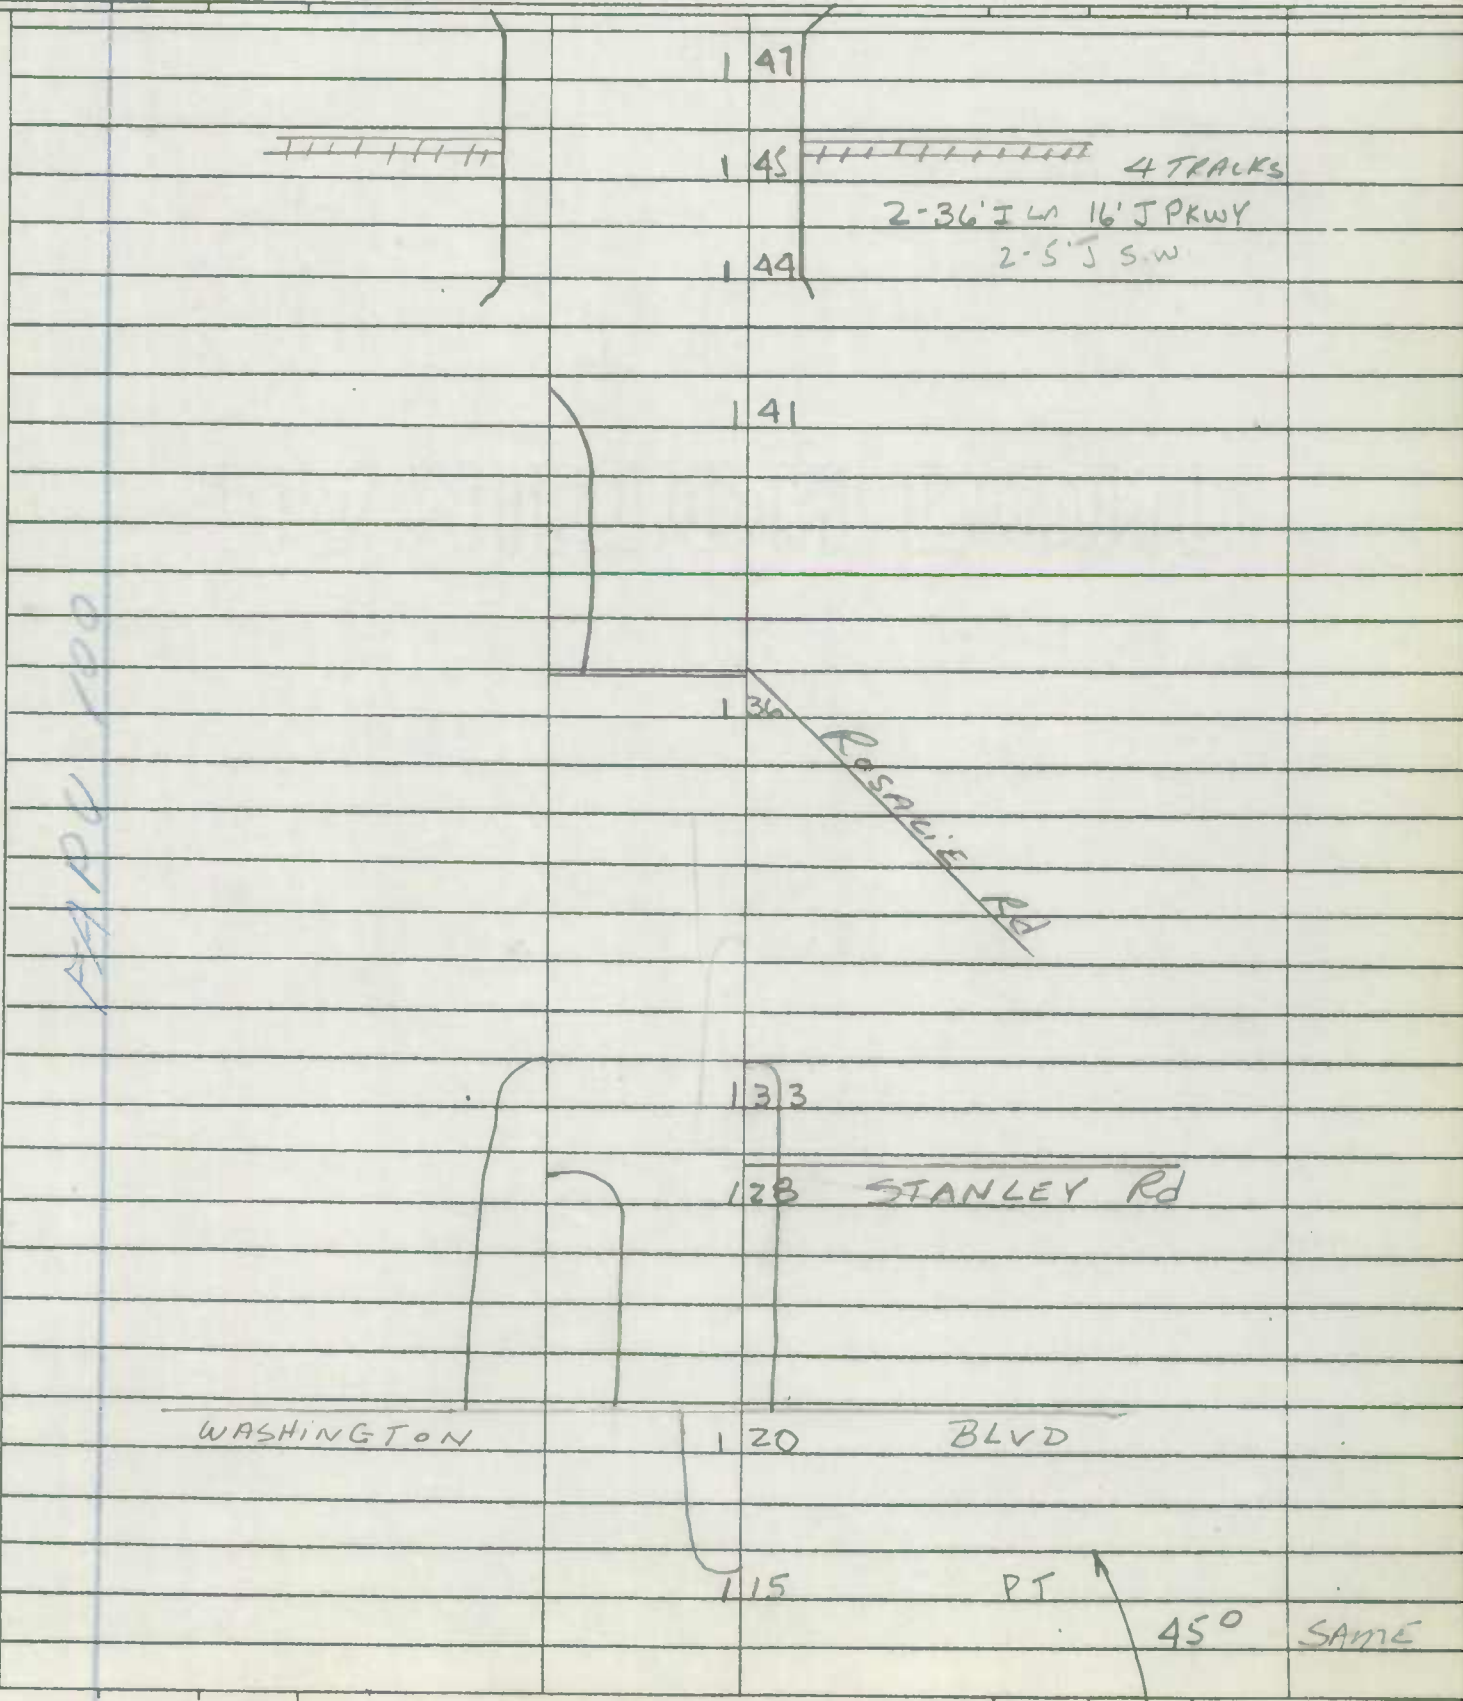 1 47
1 45 4 TRACKS
2-36' I LN 16' J PKWY
1 44 2-5' J S.W.
1 41
1 36
ROSALIE Rd
FAPU 100
1 33
1 28 STANLEY Rd
WASHINGTON 1 20 BLVD
1 15 PT
45° SAME